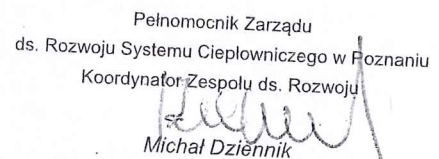 Pełnomocnik Zarządu
ds. Rozwoju Systemu Ciepłowniczego w Poznaniu
Koordynator Zespołu ds. Rozwoju
Michał Dziennik